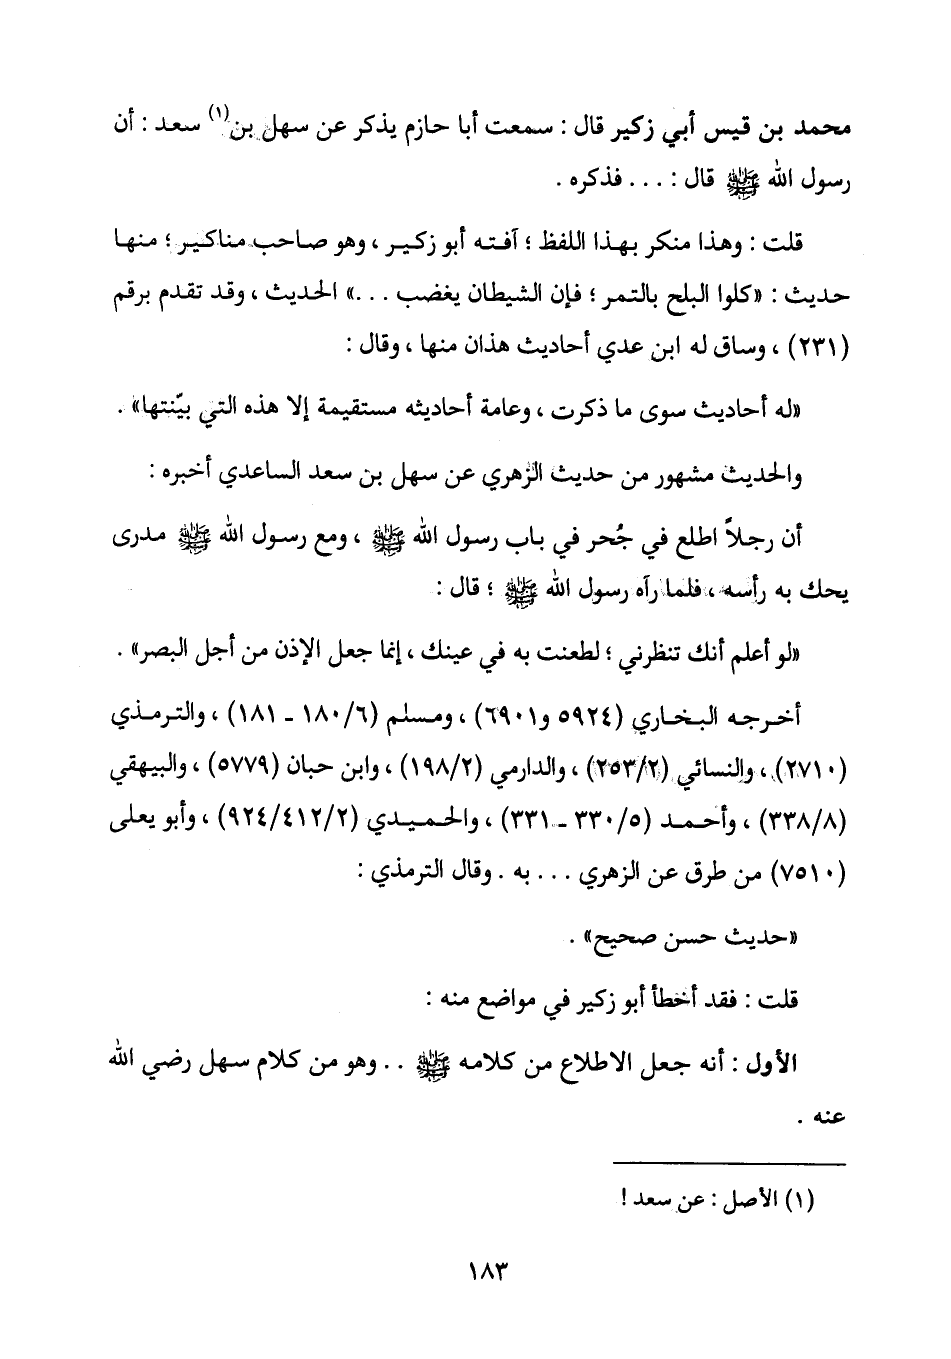 محمد بن قيس أبي زكير قال : سمعت أبا حازم يذكر عن سهل بن(١) سعد : أن
رسول الله ﷺ قال : . . . فذكره .
قلت : وهذا منكر بهذا اللفظ ؛ آفته أبو زكير ، وهو صاحب مناكير ؛ منها
حديث : «كلوا البلح بالتمر ؛ فإن الشيطان يغضب . . .» الحديث ، وقد تقدم برقم
(٢٣١) ، وساق له ابن عدي أحاديث هذان منها ، وقال :
«له أحاديث سوى ما ذكرت ، وعامة أحاديثه مستقيمة إلا هذه التي بيّنتها» .
والحديث مشهور من حديث الزهري عن سهل بن سعد الساعدي أخبره :
أن رجلاً اطلع في جُحر في باب رسول الله ﷺ ، ومع رسول الله ﷺ مدرى
يحك به رأسه ، فلما رآه رسول الله ﷺ ؛ قال :
«لو أعلم أنك تنظرني ؛ لطعنت به في عينك ، إنما جعل الإذن من أجل البصر» .
أخرجه البخاري (٥٩٢٤ و٦٩٠١) ، ومسلم (٦/ ١٨٠ - ١٨١) ، والترمذي
(٢٧١٠) ، والنسائي (٢/ ٢٥٣) ، والدارمي (٢/ ١٩٨) ، وابن حبان (٥٧٧٩) ، والبيهقي
(٨/ ٣٣٨) ، وأحمد (٥/ ٣٣٠ - ٣٣١) ، والحميدي (٢/ ٤١٢/ ٩٢٤) ، وأبو يعلى
(٧٥١٠) من طرق عن الزهري . . . به . وقال الترمذي :
«حديث حسن صحيح» .
قلت : فقد أخطأ أبو زكير في مواضع منه :
الأول : أنه جعل الاطلاع من كلامه ﷺ . . وهو من كلام سهل رضي الله
عنه .
(١) الأصل : عن سعد !
١٨٣